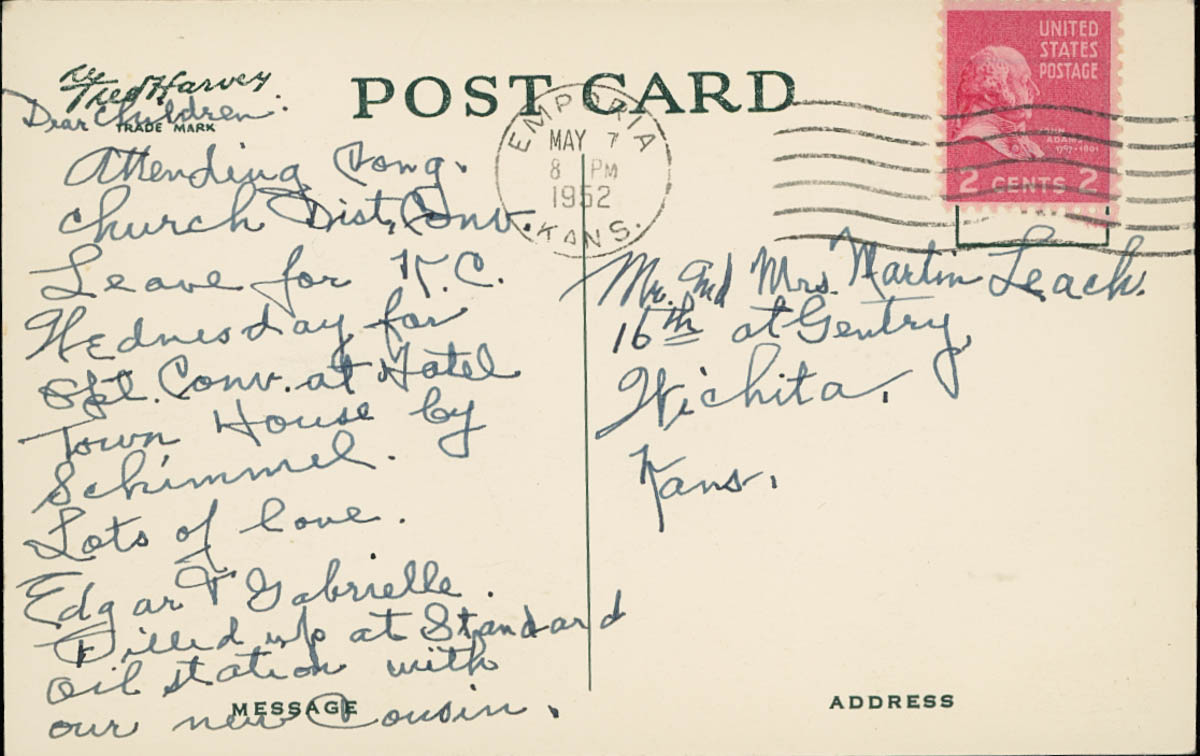 Fred Harvey
TRADE MARK
POST CARD
UNITED
STATES
POSTAGE
JOHN
ADAMS
1797-1801
2 CENTS 2
EMPORIA
MAY 7
8 PM
1952
KANS.
Dear Children.
Attending Cong.
church Dist. Conv.
Leave for K.C.
Wednesday for
Opt. Conv. at Hotel
Town House by
Schimmel.
Lots of love.
Edgar & Gabrielle.
Filled up at Standard
oil station with
our new Cousin.
MESSAGE
Mr. and Mrs. Martin Leach.
16th at Gentry,
Wichita,
Kans.
ADDRESS